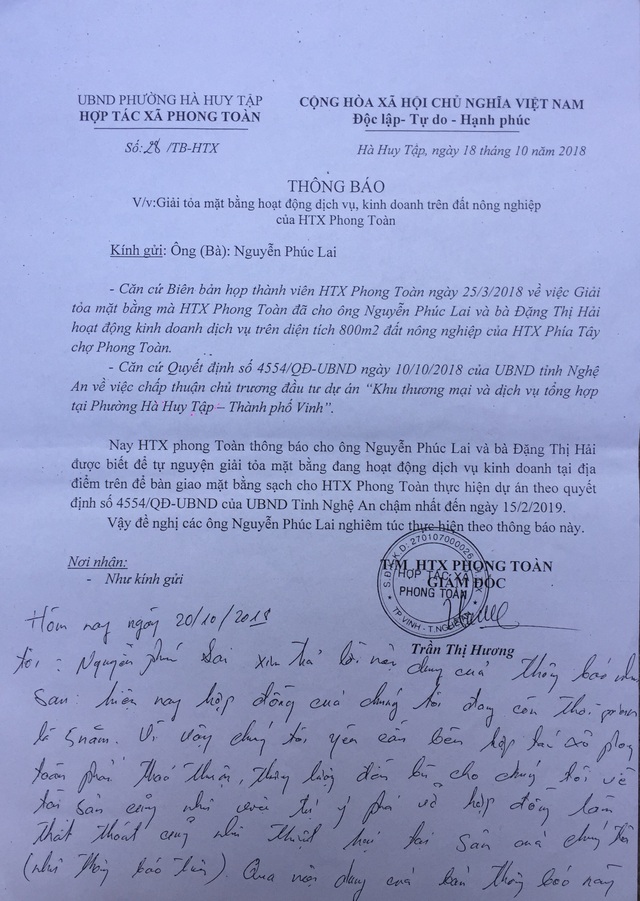 UBND PHƯỜNG HÀ HUY TẬP
HỢP TÁC XÃ PHONG TOÀN
Số:28/TB-HTX
CỘNG HÒA XÃ HỘI CHỦ NGHĨA VIỆT NAM
Độc lập- Tự do - Hạnh phúc
Hà Huy Tập, ngày 18 tháng 10 năm 2018
THÔNG BÁO
V/v:Giải tỏa mặt bằng hoạt động dịch vụ, kinh doanh trên đất nông nghiệp
của HTX Phong Toàn
Kính gửi: Ông (Bà): Nguyễn Phúc Lai
- Căn cứ Biên bản họp thành viên HTX Phong Toàn ngày 25/3/2018 về việc Giải
tỏa mặt bằng mà HTX Phong Toàn đã cho ông Nguyễn Phúc Lai và bà Đặng Thị Hải
hoạt động kinh doanh dịch vụ trên diện tích 800m2 đất nông nghiệp của HTX Phía Tây
chợ Phong Toàn.
- Căn cứ Quyết định số 4554/QĐ-UBND ngày 10/10/2018 của UBND tỉnh Nghệ
An về việc chấp thuận chủ trương đầu tư dự án “Khu thương mại và dịch vụ tổng hợp
tại Phường Hà Huy Tập – Thành phố Vinh”.
Nay HTX phong Toàn thông báo cho ông Nguyễn Phúc Lai và bà Đặng Thị Hải
được biết để tự nguyện giải tỏa mặt bằng đang hoạt động dịch vụ kinh doanh tại địa
điểm trên để bàn giao mặt bằng sạch cho HTX Phong Toàn thực hiện dự án theo quyết
định số 4554/QĐ-UBND của UBND Tỉnh Nghệ An chậm nhất đến ngày 15/2/2019.
Vậy đề nghị các ông Nguyễn Phúc Lai nghiêm túc thực hiện theo thông báo này.
Nơi nhận:
- Như kính gửi
T/M HTX PHONG TOÀN
GIÁM ĐỐC
HỢP TÁC XÃ
PHONG TOÀN
TP VINH - T. NGHỆ AN
Trần Thị Hương
Hôm nay ngày 20/10/2018
tôi : Nguyễn phúc Lai xin trả lời nội dung của thông báo như
sau: hiện nay hợp đồng của chúng tôi đang còn thời
là 5 năm. Vì vậy chúng tôi yêu cầu bên hợp tác xã phong
toàn phải thoả thuận, thương lượng đền bù cho chúng tôi về
tài sản cũng như tự ý phá vỡ hợp đồng làm
thất thoát cũng như thiệt hại tài sản của chúng tôi
(như thông báo trên). Qua nội dung của bản thông báo này